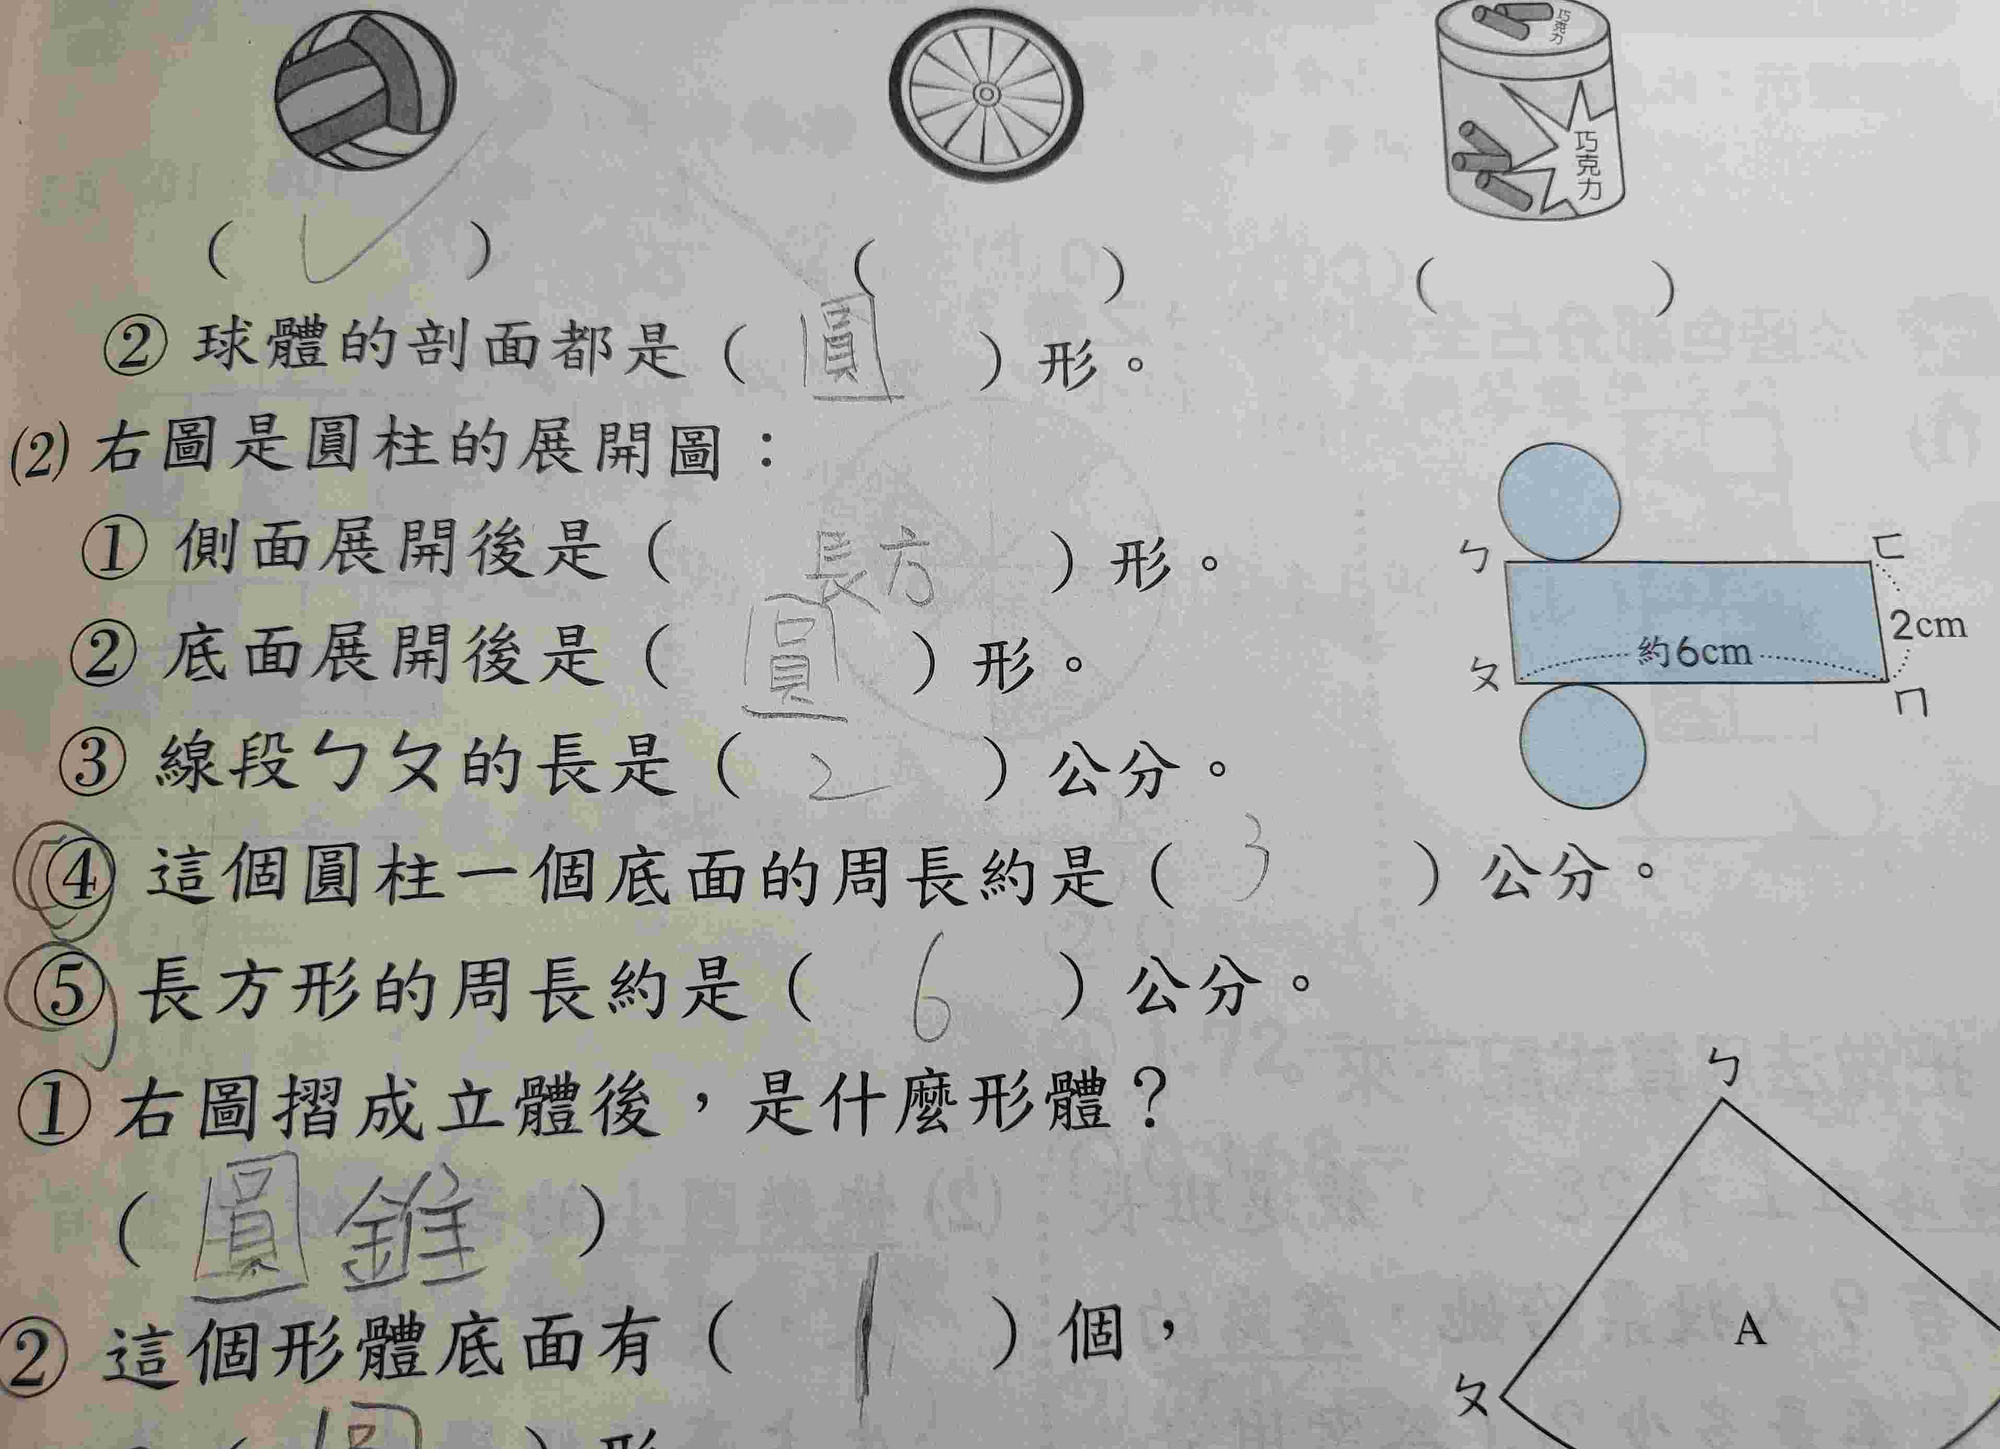 巧克力
巧克力
( ✓ ) ( ) ( )
② 球體的剖面都是( 圓 )形。
(2) 右圖是圓柱的展開圖：
① 側面展開後是( 長方 )形。
② 底面展開後是( 圓 )形。
③ 線段ㄅㄆ的長是( 2 )公分。
④ 這個圓柱一個底面的周長約是( 3 )公分。
⑤ 長方形的周長約是( 6 )公分。
ㄅ ㄈ
2cm
約6cm
ㄆ ㄇ
① 右圖摺成立體後，是什麼形體？
( 圓錐 )
② 這個形體底面有( 1 )個，
ㄅ
A
ㄆ